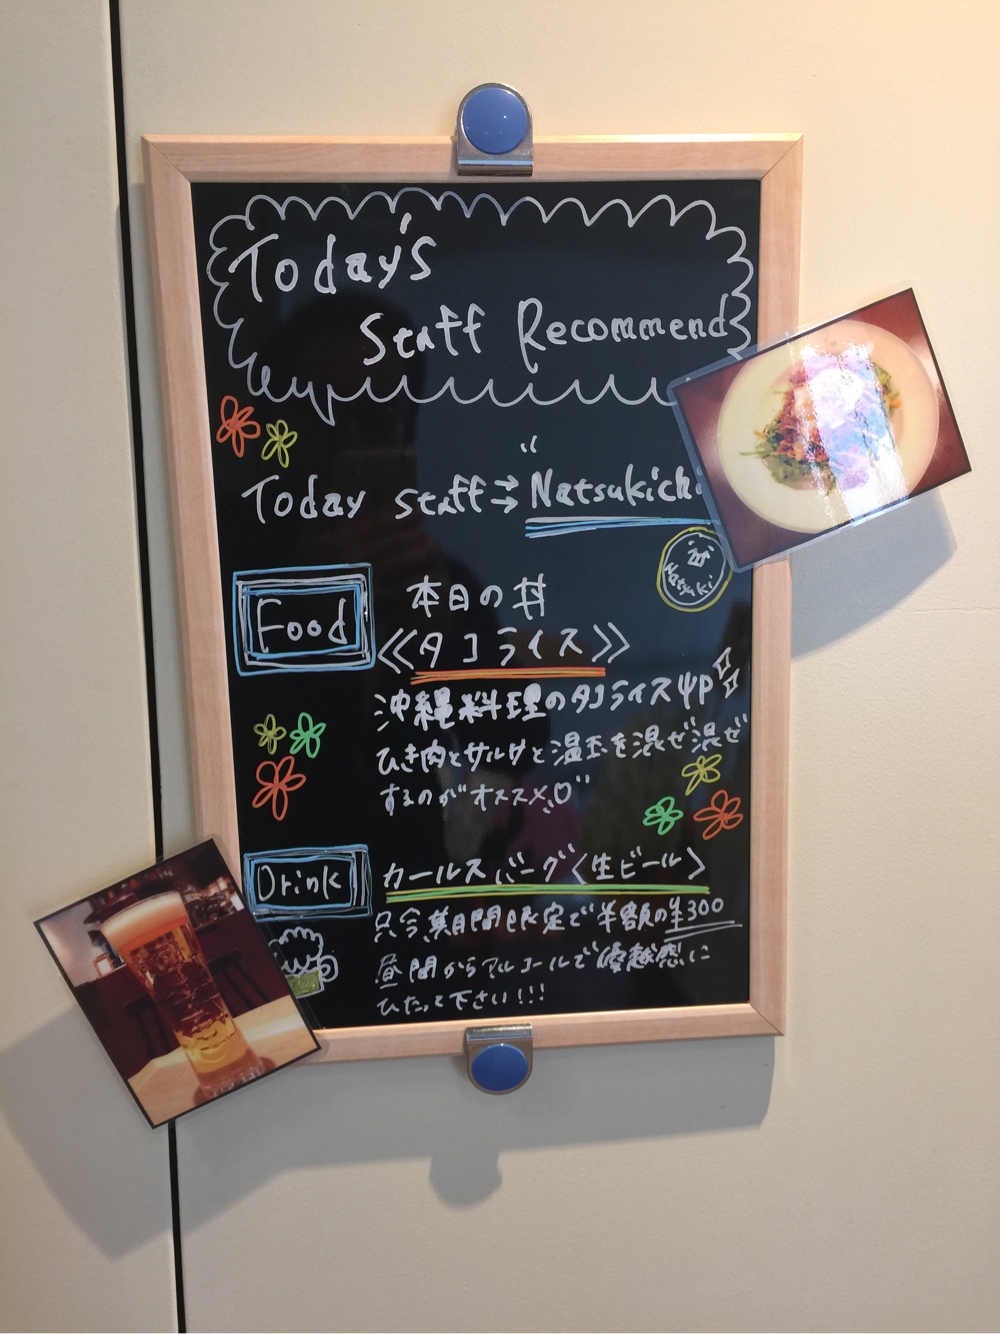 Today's
Staff Recommend
Today staff⇒ "Natsukichi
Natsuki
Food
本日の丼
≪タコライス≫
沖縄料理のタコライス
ひき肉とサルサと温玉を混ぜ混ぜ
するのがオススメ♡
Drink
カールスバーグ〈生ビール〉
只今期間限定で半額の¥300
昼間からアルコールで優越感に
ひたって下さい!!!